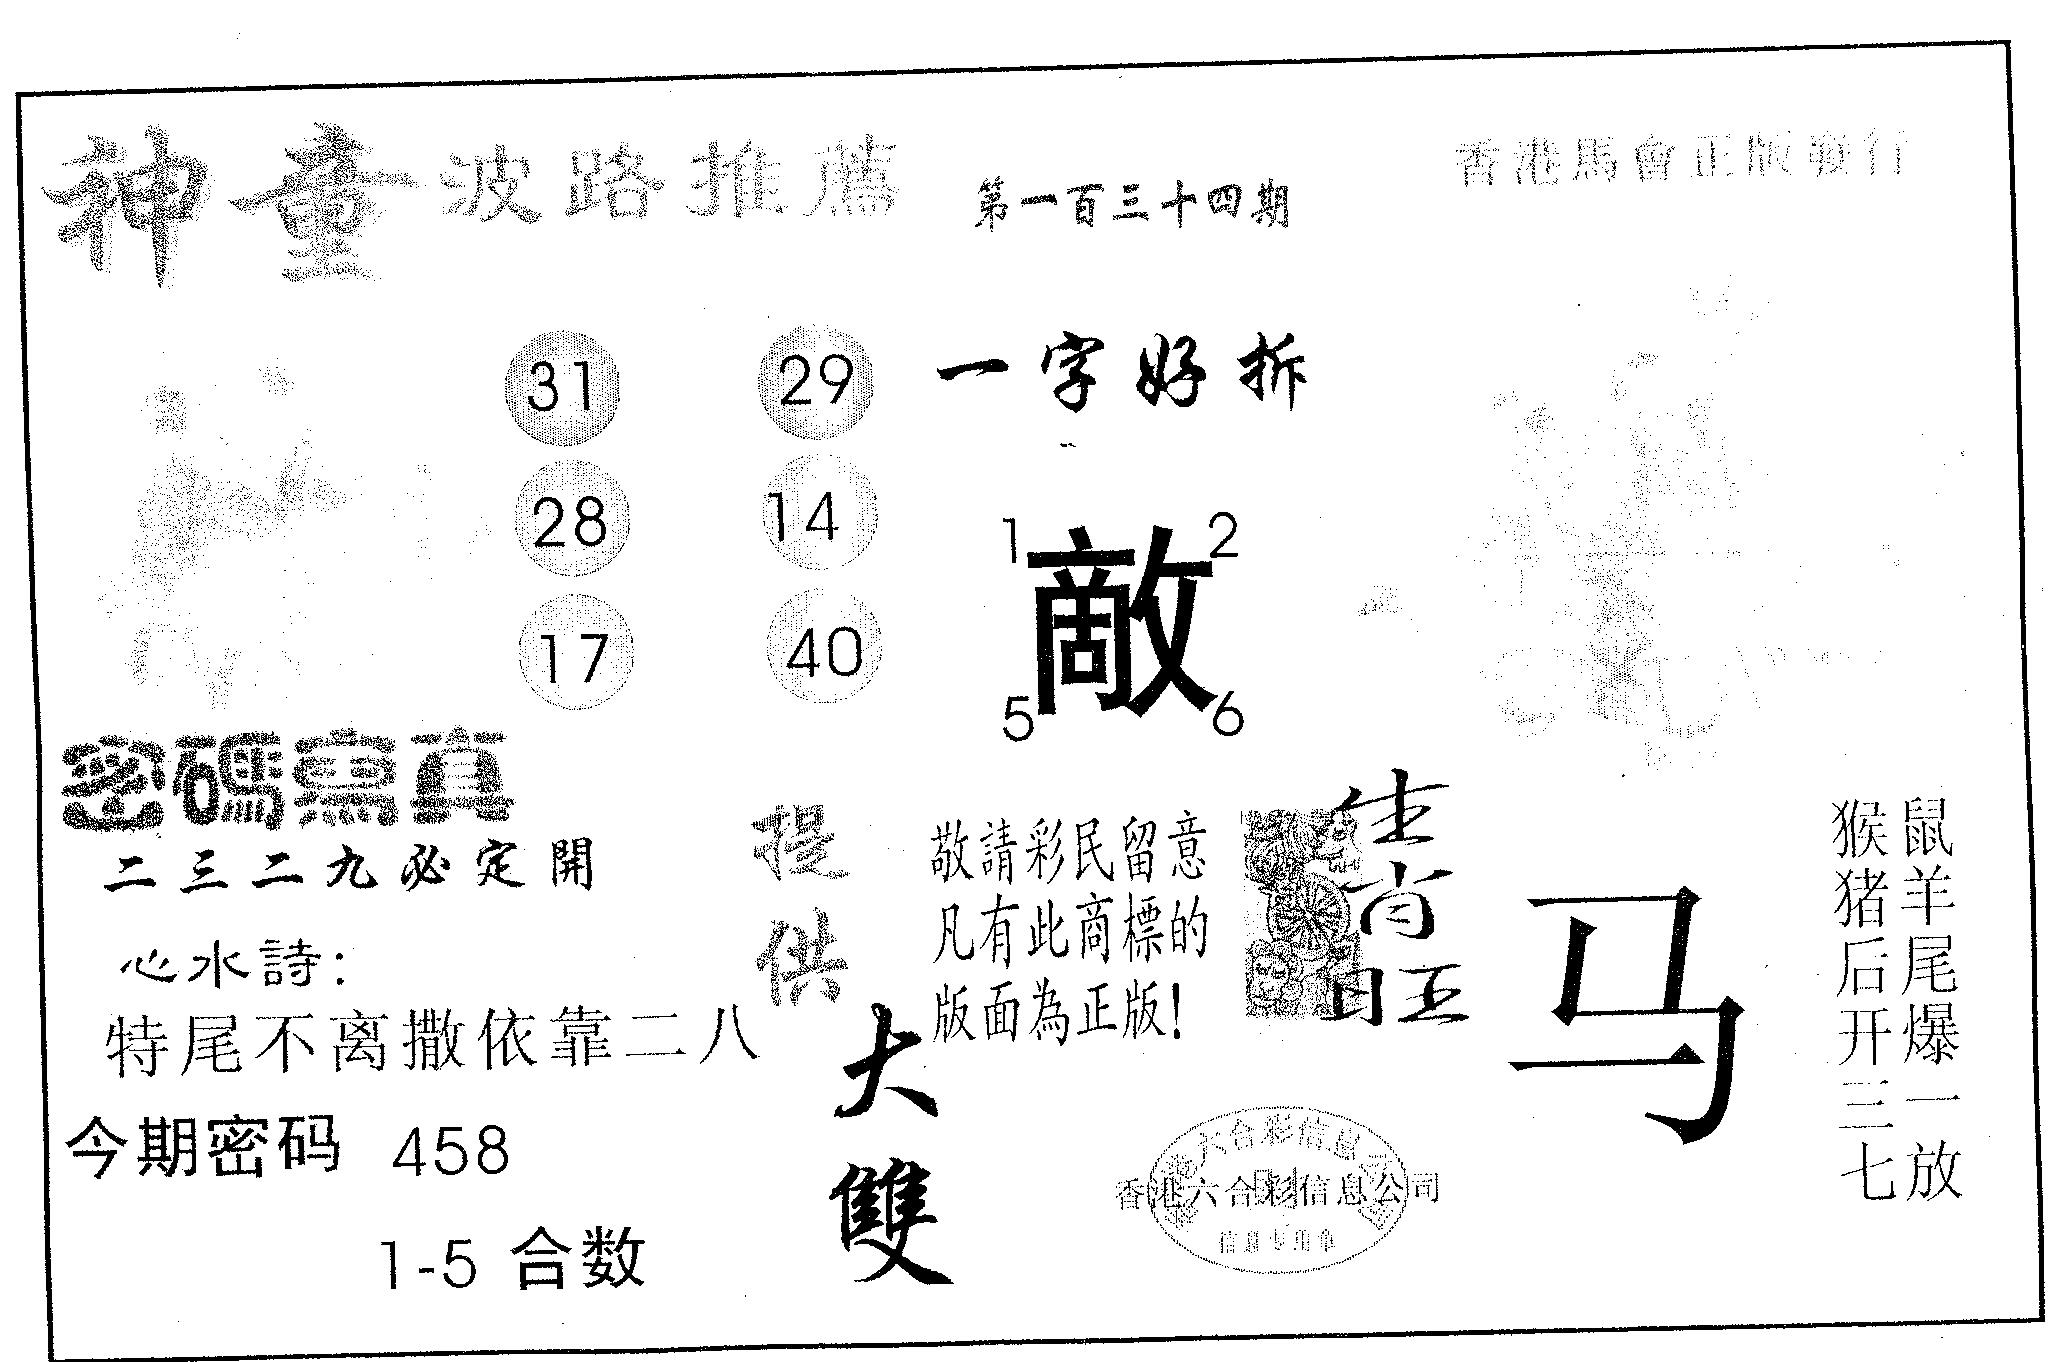 神童波路推薦
第一百三十四期
香港馬會正版發行
31 29
28 14
17 40
一字好拆
1 2
敵
5 6
密碼寫真
二三二九必定開
心水詩:
特尾不离撒依靠二八
今期密码 458
1-5 合数
提供
大雙
敬請彩民留意
凡有此商標的
版面為正版!
生肖旺
马
鼠羊尾爆一放
猴猪后开三七
香港六合彩信息公司
香港六合彩信息公司